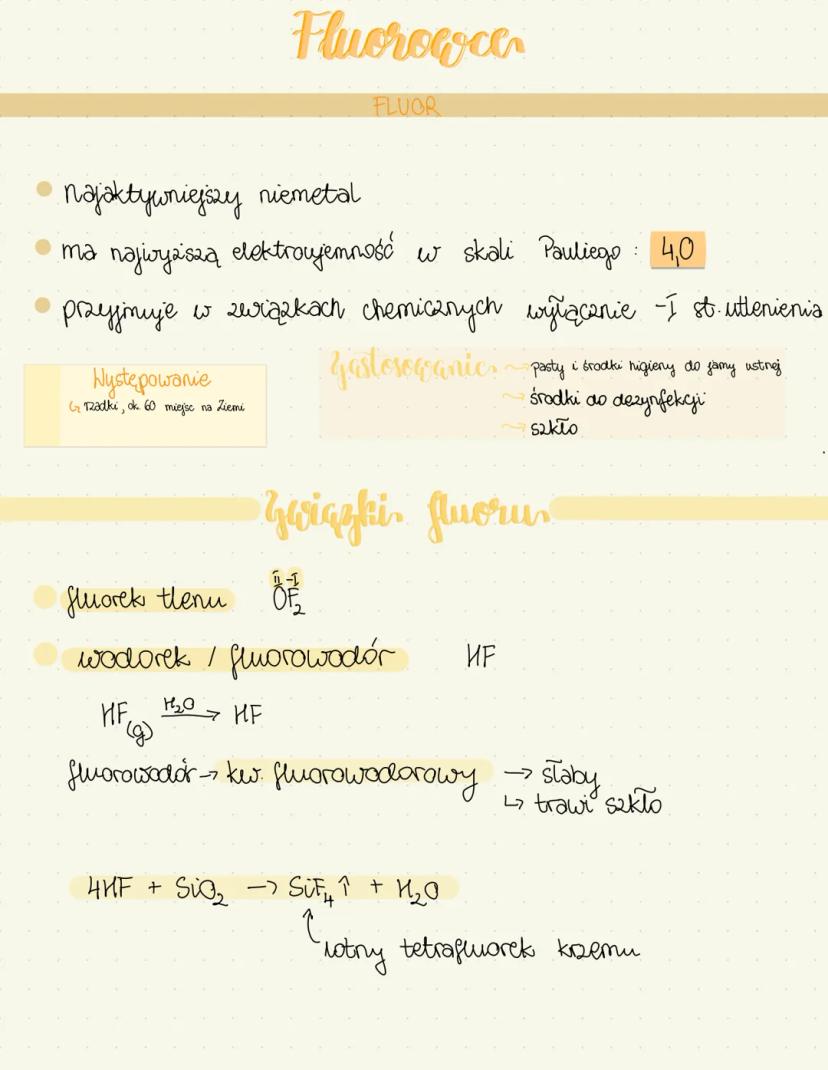 Fluorowce
FLUOR
najaktywniejszy niemetal
ma najwyższą elektroujemność w skali Pauliego : 4,0
przyjmuje w związkach chemicznych wyłącznie -I st. utlenienia
Występowanie
↳ rzadki, ok. 60 miejsc na Ziemi
Zastosowanie
→ pasty i środki higieny do jamy ustnej
→ środki do dezynfekcji
→ szkło
Związki fluoru
fluorek tlenu
II -I
OF₂
wodorek / fluorowodór HF
HF(g) —H₂O→ HF
fluorowodór → kw. fluorowodorowy → słaby
↳ trawi szkło
4HF + SiO₂ → SiF₄↑ + H₂O
lotny tetrafluorek krzemu